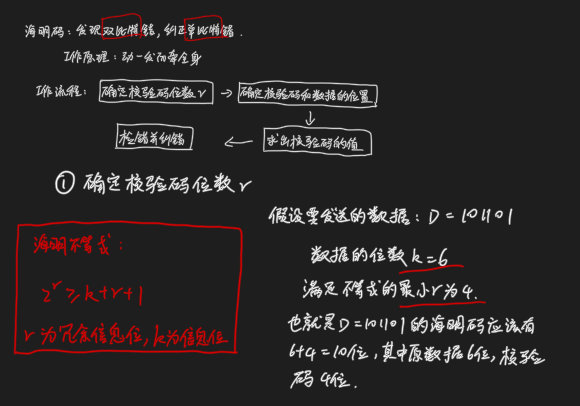 海明码：发现双比特错，纠正单比特错．
工作原理：动一发而牵全身
工作流程：确定校验码位数r → 确定校验码和数据的位置
检错并纠错 ← 求出校验码的值
① 确定校验码位数r
海明不等式：
2^r ≥ k+r+1
r为冗余信息位，k为信息位
假设要发送的数据：D = 101101
数据的位数k=6
满足不等式的最小r为4．
也就是D=101101的海明码应该有
6+4=10位，其中原数据6位，校验
码4位．